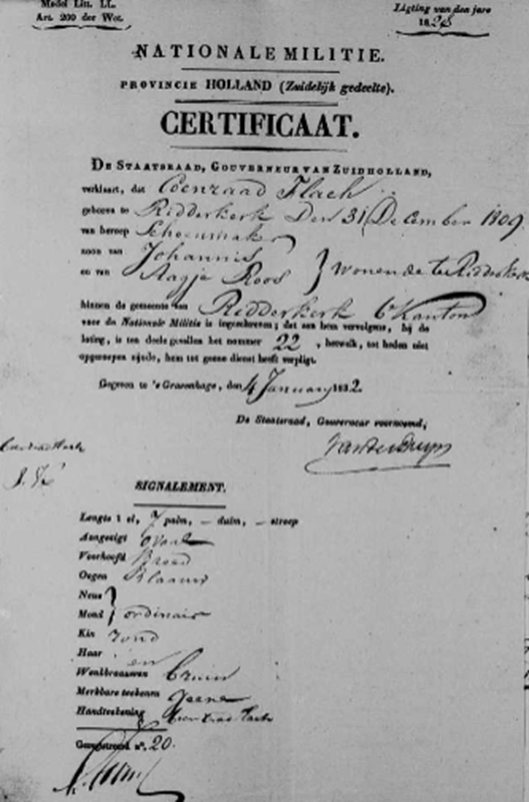 Model Litt. LL.
Art. 200 der Wet.
Ligting van den jare
1828
NATIONALE MILITIE.
PROVINCIE HOLLAND (Zuidelijk gedeelte).
CERTIFICAAT.
DE STAATSRAAD, GOUVERNEUR VAN ZUIDHOLLAND,
verklaart, dat Coenraad Flach
geboren te Ridderkerk Den 31 December 1809
van beroep Schoenmaker
zoon van Johannis
en van Aagje Roos } wonende te Ridderkerk
binnen de gemeente van Ridderkerk 6e Kanton
voor de Nationale Militie is ingeschreven; dat aan hem vervolgens, bij de
loting, is ten deele gevallen het nommer 22, hetwelk, tot heden niet
opgeroepen zijnde, hem tot geene dienst heeft verpligt.
Gegeven te 's Gravenhage, den 4 January 1832.
De Staatsraad, Gouverneur voornoemd,
VanderDuyn
SIGNALEMENT.
Lengte 1 el, 7 palm, – duim, – streep
Aangezigt Ovaal
Voorhoofd Breed
Oogen Blaauw
Neus
Mond } ordinair
Kin rond
Haar en
Wenkbraauwen bruin
Merkbare teekenen Geene
Handteekening
Geregistreerd no. 20.